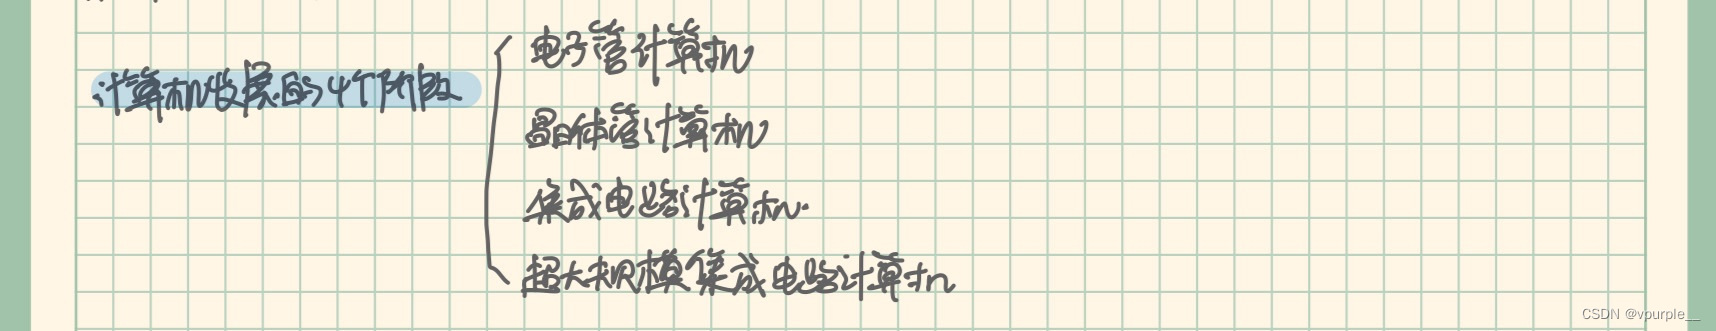 计算机发展的4个阶段
电子管计算机
晶体管计算机
集成电路计算机
超大规模集成电路计算机
CSDN @vpurple__